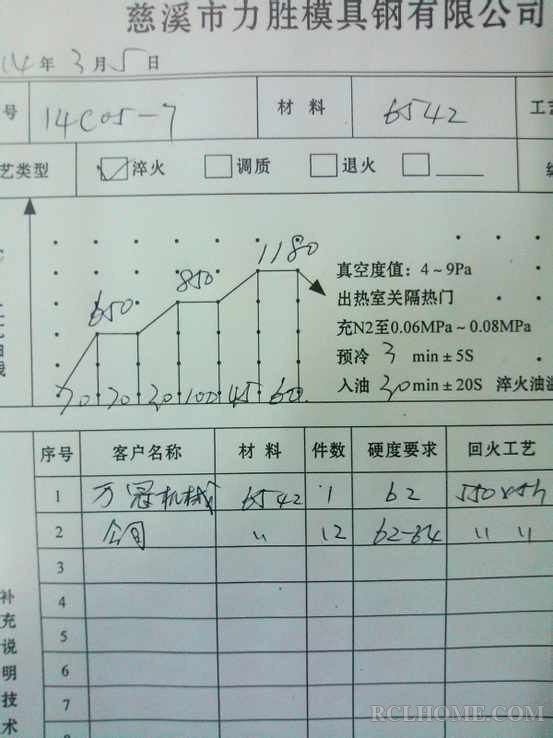 慈溪市力胜模具钢有限公司
14 年 3 月 5 日
号 14C05-7 材 料 6542 工艺
艺类型 淬火 调质 退火
1180
850
650
真空度值：4～9Pa
出热室关隔热门
充N2至0.06MPa～0.08MPa
预冷 3 min±5S
入油 30 min±20S 淬火油温
70 70 30 100 45 60
序号 客户名称 材 料 件数 硬度要求 回火工艺
1 万冠机械 6542 1 62 550x5h
2 公司 " 12 62-64 " "
3
4
5
6
7
8
补充说明技术
RCLHOME.COM